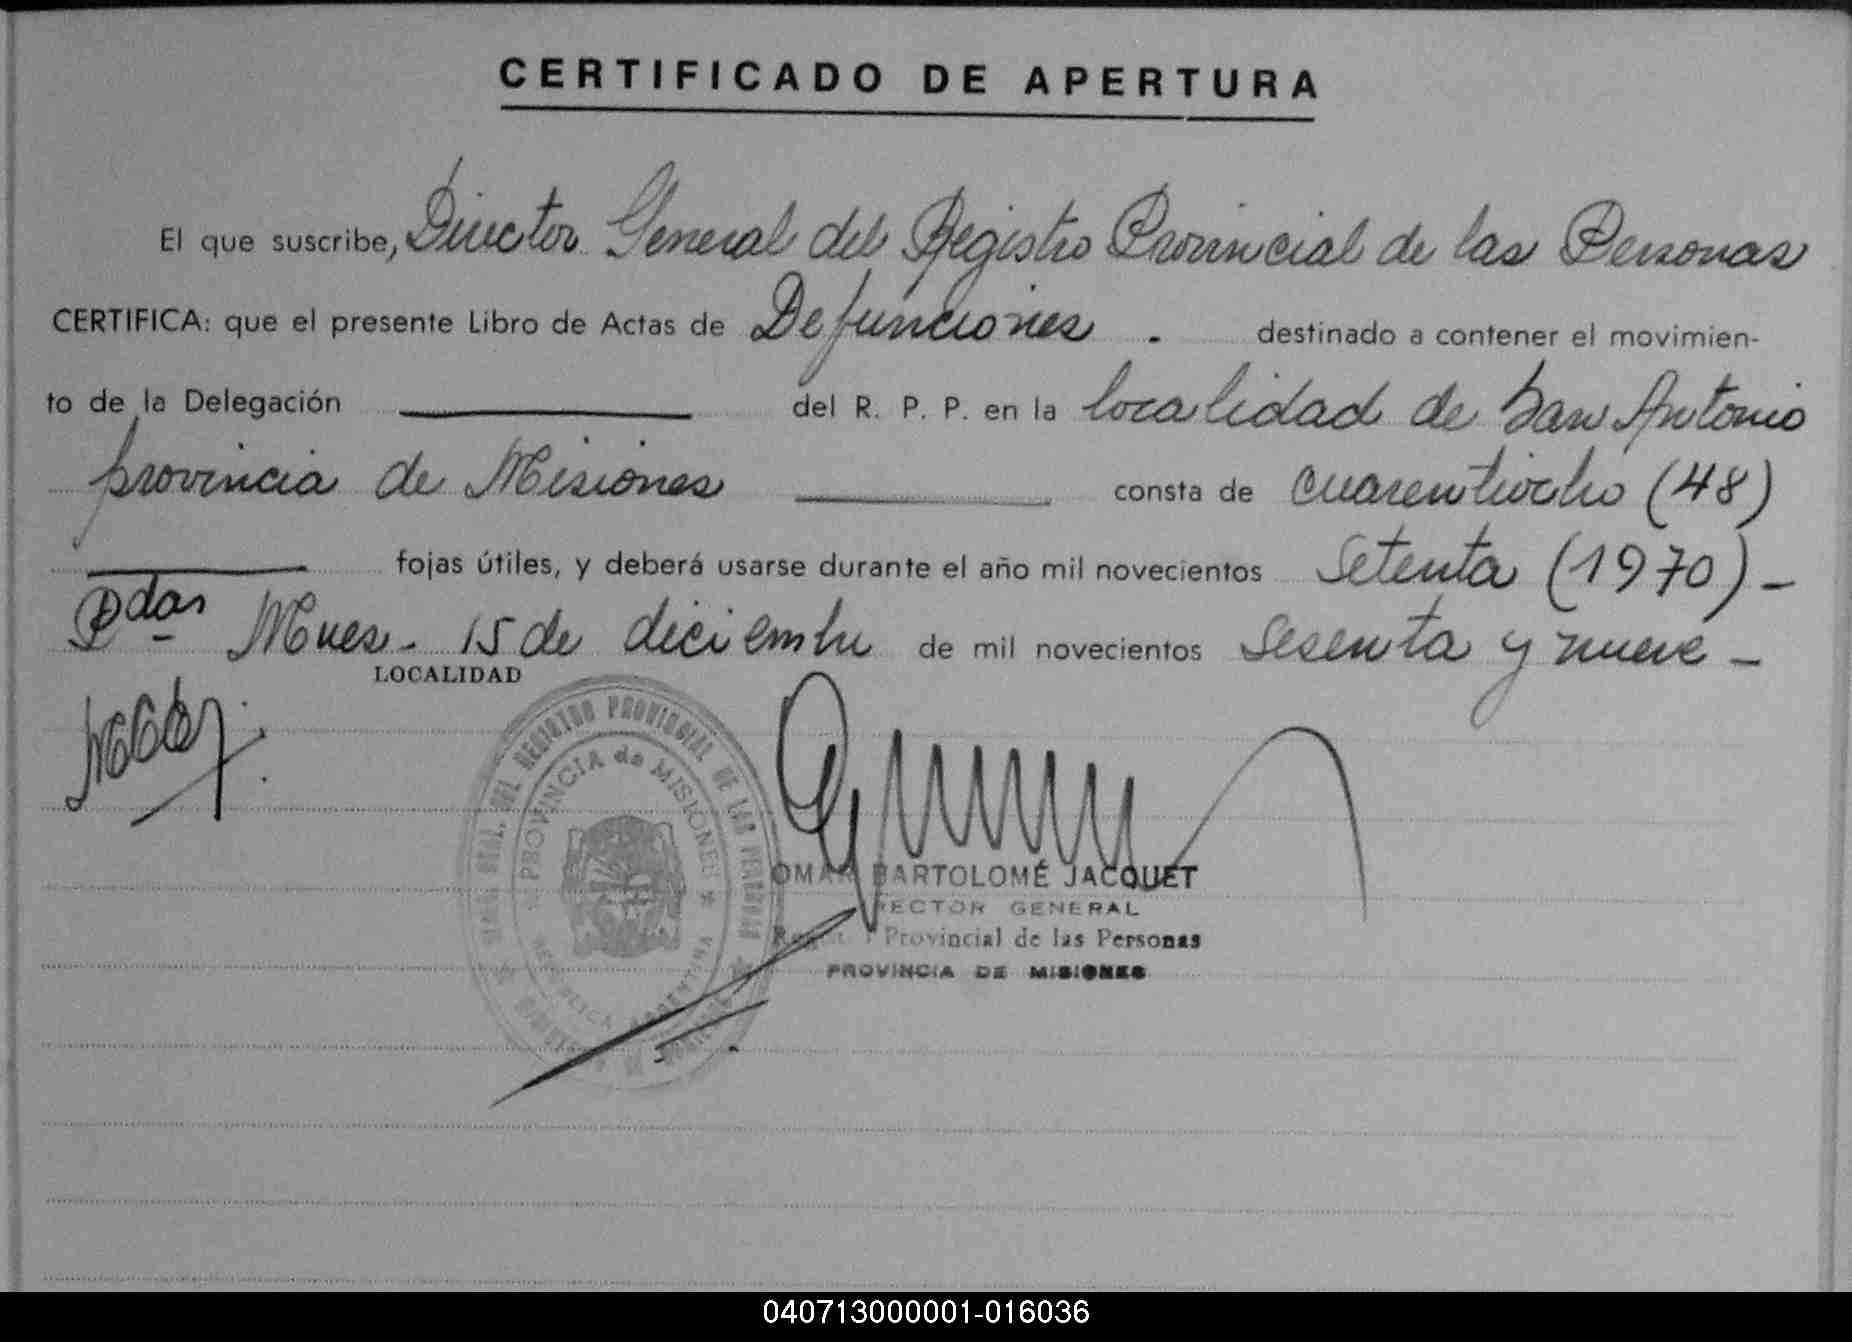 CERTIFICADO DE APERTURA
El que suscribe, Director General del Registro Provincial de las Personas
CERTIFICA: que el presente Libro de Actas de Defunciones . destinado a contener el movimien-
to de la Delegación del R. P. P. en la localidad de San Antonio
provincia de Misiones consta de cuarentiocho (48)
fojas útiles, y deberá usarse durante el año mil novecientos Setenta (1970) -
Pdas Mnes - 15 de diciembre de mil novecientos sesenta y nueve -
LOCALIDAD
DEL REGISTRO PROVINCIAL DE LAS PERSONAS
PROVINCIA de MISIONES
REPUBLICA ARGENTINA
OMAR BARTOLOMÉ JACQUET
DIRECTOR GENERAL
Registro Provincial de las Personas
PROVINCIA DE MISIONES
040713000001-016036